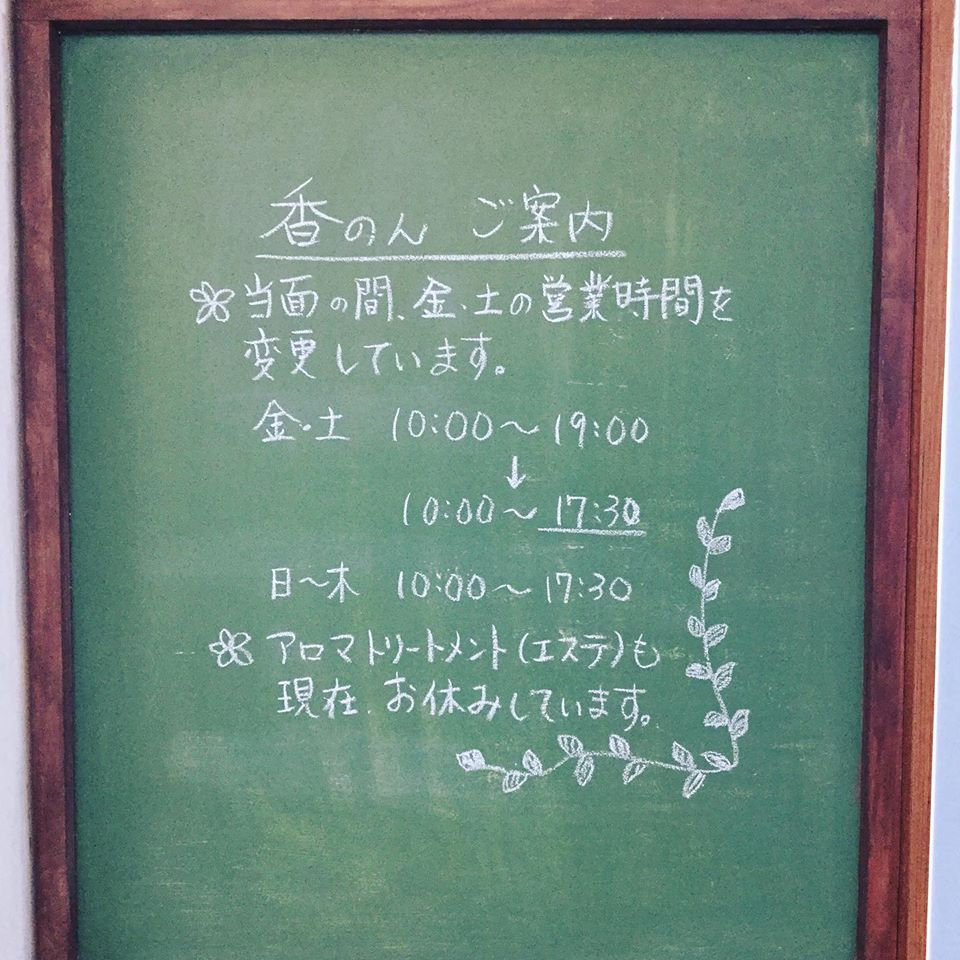 香のん ご案内
当面の間、金・土の営業時間を
変更しています。
金・土 10:00〜19:00
↓
10:00〜17:30
日〜木 10:00〜17:30
アロマトリートメント(エステ)も
現在、お休みしています。